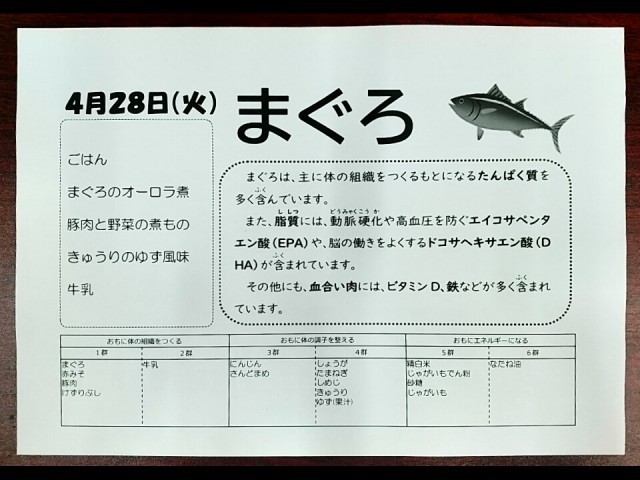 4月28日(火)
まぐろ
ごはん
まぐろのオーロラ煮
豚肉と野菜の煮もの
きゅうりのゆず風味
牛乳
まぐろは、主に体の組織をつくるもとになるたんぱく質を
多く含んでいます。
また、脂質には、動脈硬化や高血圧を防ぐエイコサペンタ
エン酸(EPA)や、脳の働きをよくするドコサヘキサエン酸(D
HA)が含まれています。
その他にも、血合い肉には、ビタミンD、鉄などが多く含まれ
ています。
おもに体の組織をつくる おもに体の調子を整える おもにエネルギーになる
1群 2群 3群 4群 5群 6群
まぐろ 牛乳 にんじん しょうが 精白米 なたね油
赤みそ さんどまめ たまねぎ じゃがいもでん粉
豚肉 しめじ 砂糖
けずりぶし きゅうり じゃがいも
ゆず(果汁)